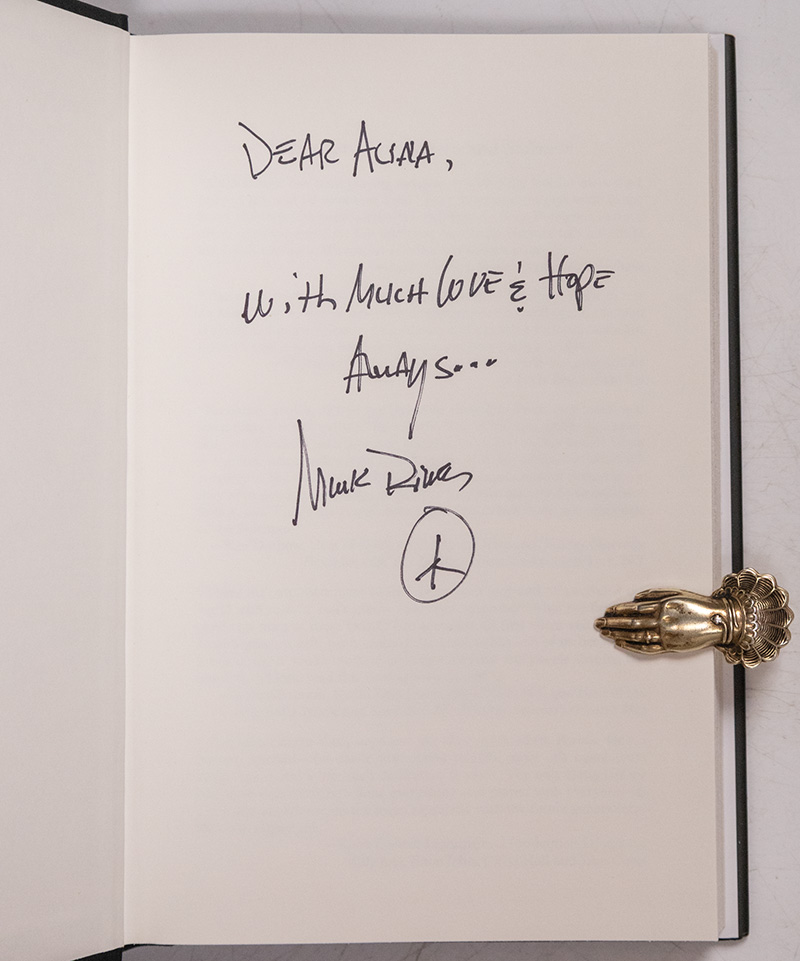 DEAR ALINA,
With MUCH LOVE & HOPE
ALWAYS...
Mark